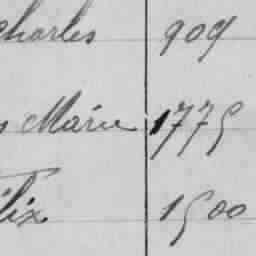 Charles 909
Marie 1775
lix 1500